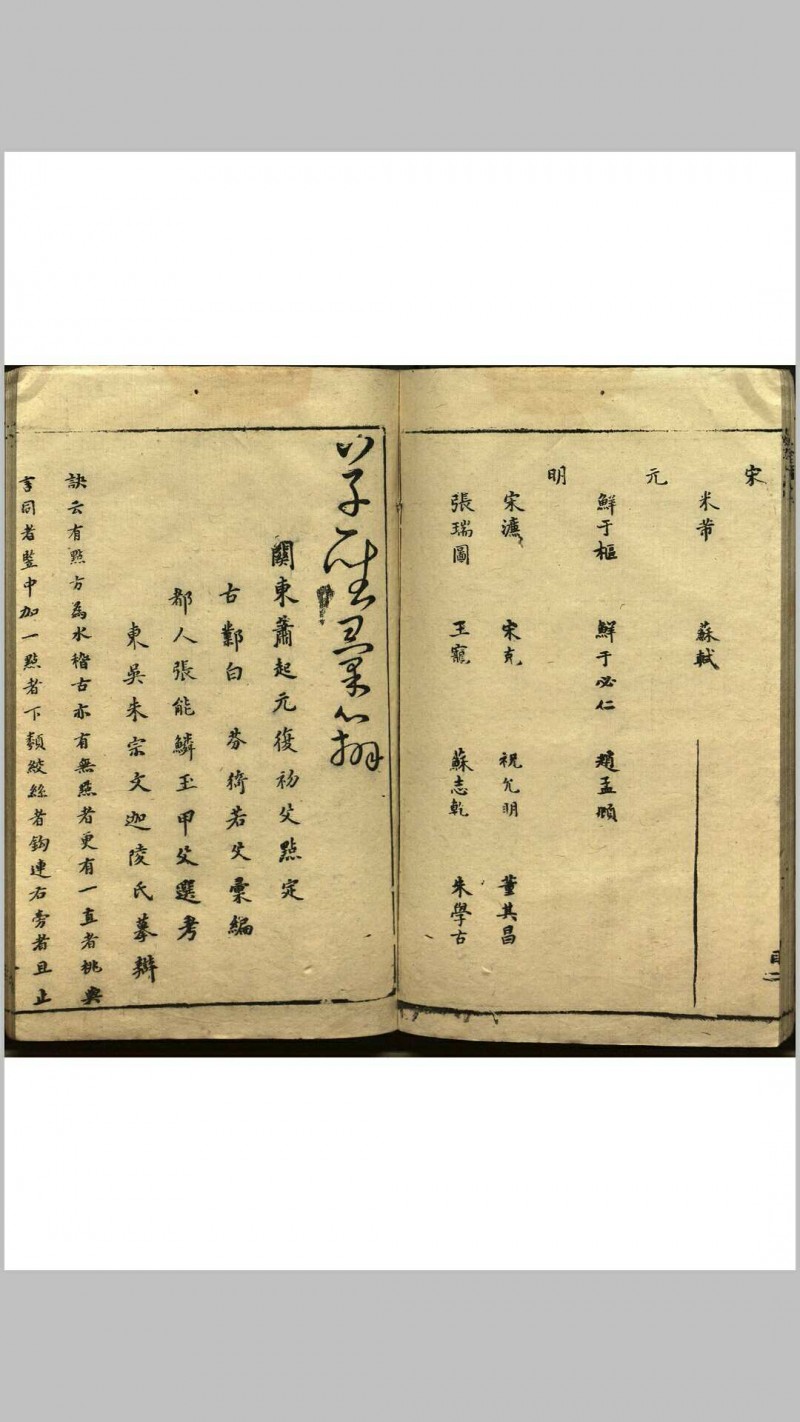 宋
米芾 蘇軾
元
鮮于樞 鮮于必仁 趙孟頫
明
宋濂 宋克 祝允明 董其昌
張瑞圖 王寵 蘇志乾 朱學古
目二
草聖彙辯
關東蕭起元復初父㸃定
古鄴白 芬猗若父彙編
都人張能鱗玉甲父選考
東吳朱宗文迦陵氏摹辯
訣云有㸃方為水稽古亦有無㸃者更有一直者桃與
言同者豎中加一㸃者下類絞絲者鉤連右旁者且止